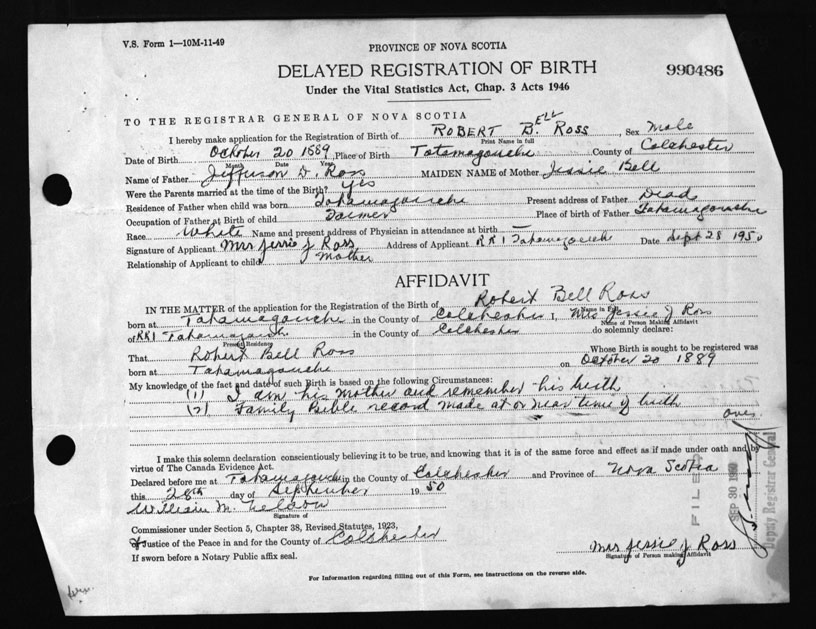 V.S. Form 1—10M-11-49
PROVINCE OF NOVA SCOTIA
DELAYED REGISTRATION OF BIRTH
990486
Under the Vital Statistics Act, Chap. 3 Acts 1946
TO THE REGISTRAR GENERAL OF NOVA SCOTIA
I hereby make application for the Registration of Birth of ROBERT BELL ROSS, Sex Male
Print Name in full
Date of Birth October 20 1889, Place of Birth Tatamagouche County of Colchester
Month Date Year
Name of Father Jefferson D. Ross MAIDEN NAME of Mother Jessie Bell
Were the Parents married at the time of the Birth? Yes
Residence of Father when child was born Tatamagouche Present address of Father Dead
Occupation of Father at Birth of child Farmer Place of birth of Father Tatamagouche
Race White Name and present address of Physician in attendance at birth —
Signature of Applicant Mrs Jessie J Ross Address of Applicant RR1 Tatamagouche Date Sept 28 1950
Relationship of Applicant to child Mother
AFFIDAVIT
IN THE MATTER of the application for the Registration of Birth of Robert Bell Ross
Name in Full
born at Tatamagouche in the County of Colchester I, Mrs Jessie J Ross
Name of Person Making Affidavit
of RR1 Tatamagouche in the County of Colchester do solemnly declare:
Present Residence
That Robert Bell Ross Whose Birth is sought to be registered was
born at Tatamagouche on October 20 1889
My knowledge of the fact and date of such Birth is based on the following Circumstances:
(1) I am his mother and remember his birth
(2) Family Bible record made at or near time of birth
over
I make this solemn declaration conscientiously believing it to be true, and knowing that it is of the same force and effect as if made under oath and by
virtue of The Canada Evidence Act.
Declared before me at Tatamagouche in the County of Colchester and Province of Nova Scotia
this 28th day of September 1950
William M.
Signature of
Commissioner under Section 5, Chapter 38, Revised Statutes, 1923,
Justice of the Peace in and for the County of Colchester
If sworn before a Notary Public affix seal.
Mrs Jessie J Ross
Signature of Person making Affidavit
For Information regarding filling out of this Form, see instructions on the reverse side.
FILED
SEP 30 1950
Deputy Registrar General